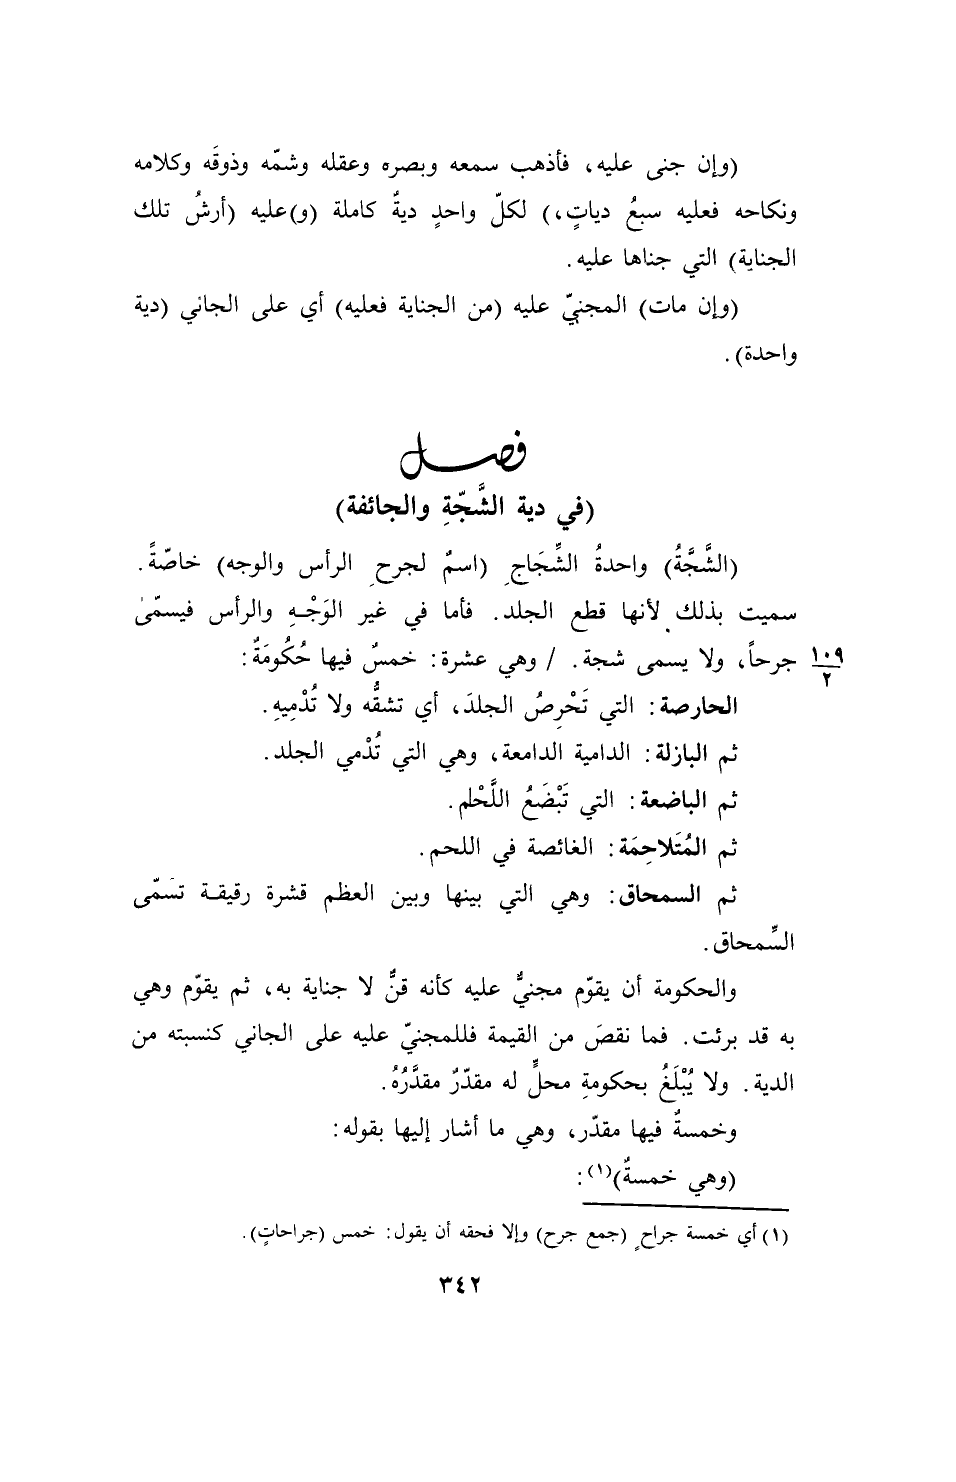 (وإن جنى عليه، فأذهب سمعه وبصره وعقله وشمّه وذوقَه وكلامه
ونكاحه فعليه سبعُ دياتٍ،) لكلّ واحدٍ ديةٌ كاملة (و)عليه (أرشُ تلك
الجناية) التي جناها عليه.
(وإن مات) المجنيّ عليه (من الجناية فعليه) أي على الجاني (دية
واحدة).
فصل
(في دية الشَّجّةِ والجائفة)
(الشَّجَّةُ) واحدةُ الشِّجَاجِ (اسمٌ لجرحِ الرأس والوجه) خاصّةً.
سميت بذلك لأنها قطع الجلد. فأما في غير الوَجْهِ والرأس فيسمّى
جرحاً، ولا يسمى شجة. / وهي عشرة: خمسٌ فيها حُكُومَةٌ:
١٠٩
٢
الحارصة: التي تَحْرِصُ الجلدَ، أي تشقُّه ولا تُدْمِيهِ.
ثم البازلة: الدامية الدامعة، وهي التي تُدْمي الجلد.
ثم الباضعة: التي تَبْضَعُ اللَّحْم.
ثم المُتَلاحِمَة: الغائصة في اللحم.
ثم السمحاق: وهي التي بينها وبين العظم قشرة رقيقة تسَمّى
السِّمحاق.
والحكومة أن يقوّم مجنيٌّ عليه كأنه قنٌّ لا جناية به، ثم يقوّم وهي
به قد برئت. فما نقصَ من القيمة فللمجنيّ عليه على الجاني كنسبته من
الدية. ولا يُبْلَغُ بحكومةِ محلٍّ له مقدّرٌ مقدَّرُهُ.
وخمسةٌ فيها مقدّر، وهي ما أشار إليها بقوله:
(وهي خمسةٌ)(١):
(١) أي خمسة جراحٍ (جمع جرح) وإلا فحقه أن يقول: خمس (جراحاتٍ).
٣٤٢